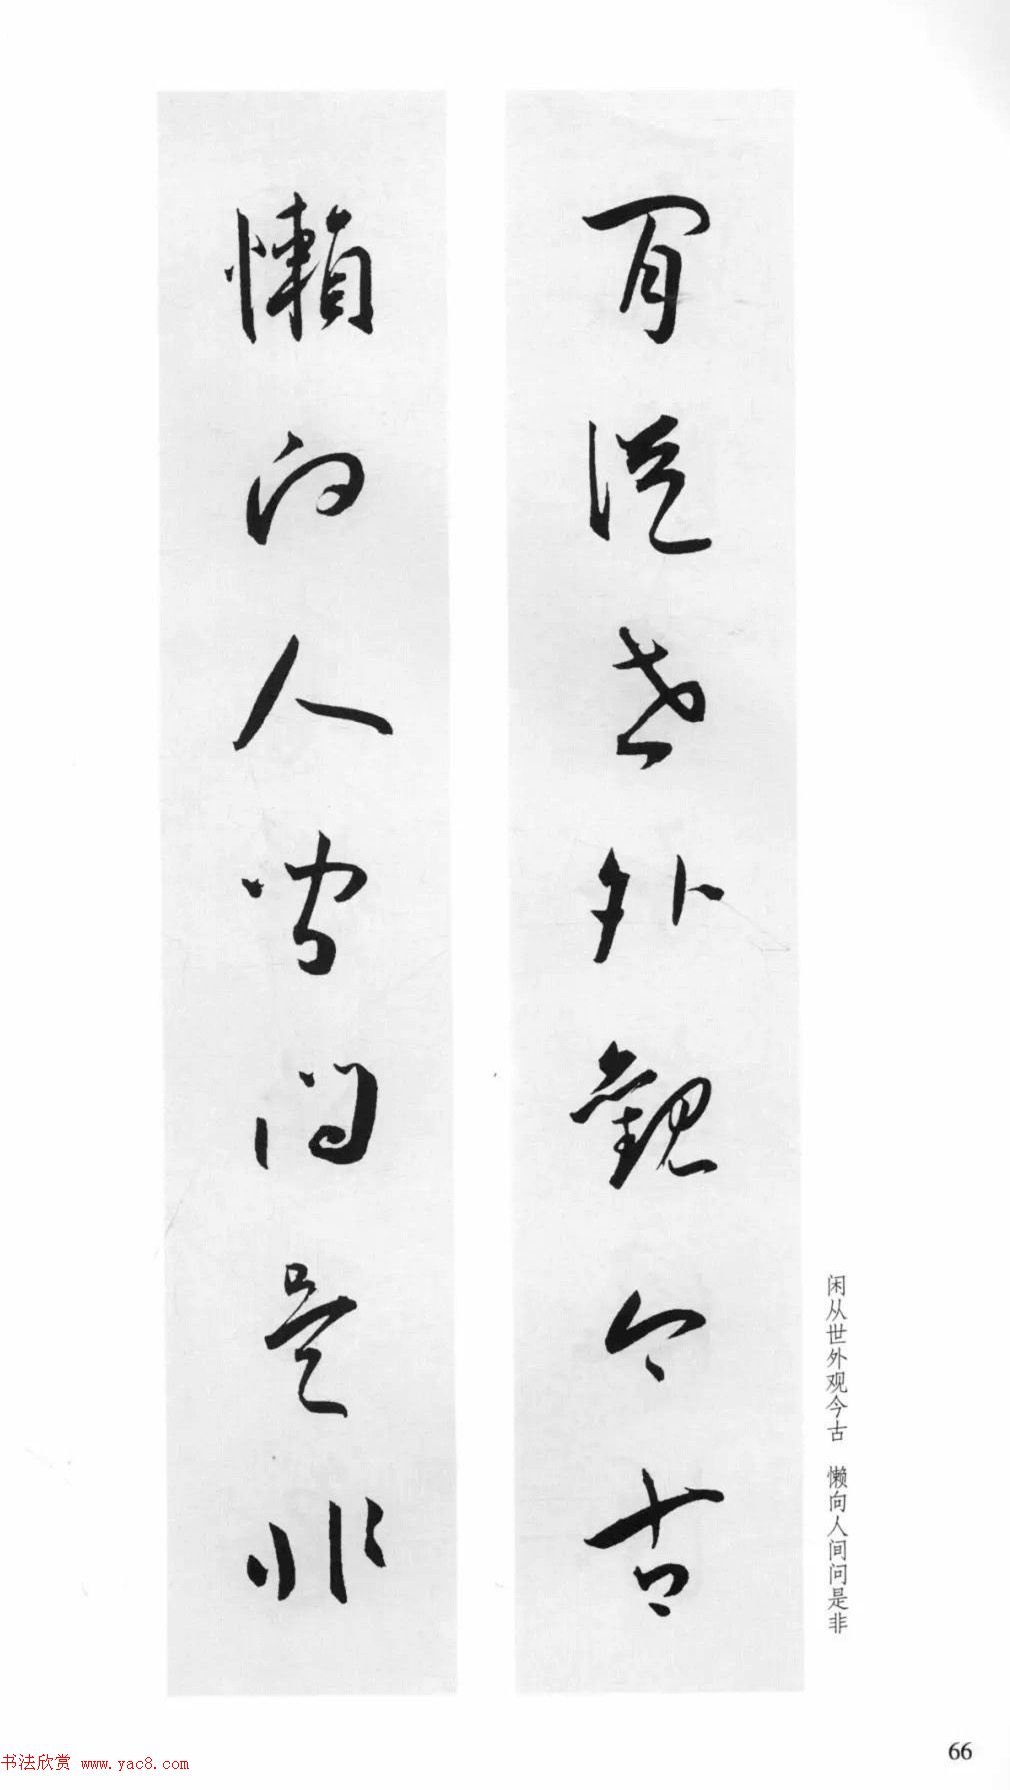 閒從世外觀今古
懶向人問是非
闲从世外观今古 懒向人间问是非
66
书法欣赏 www.yac8.com